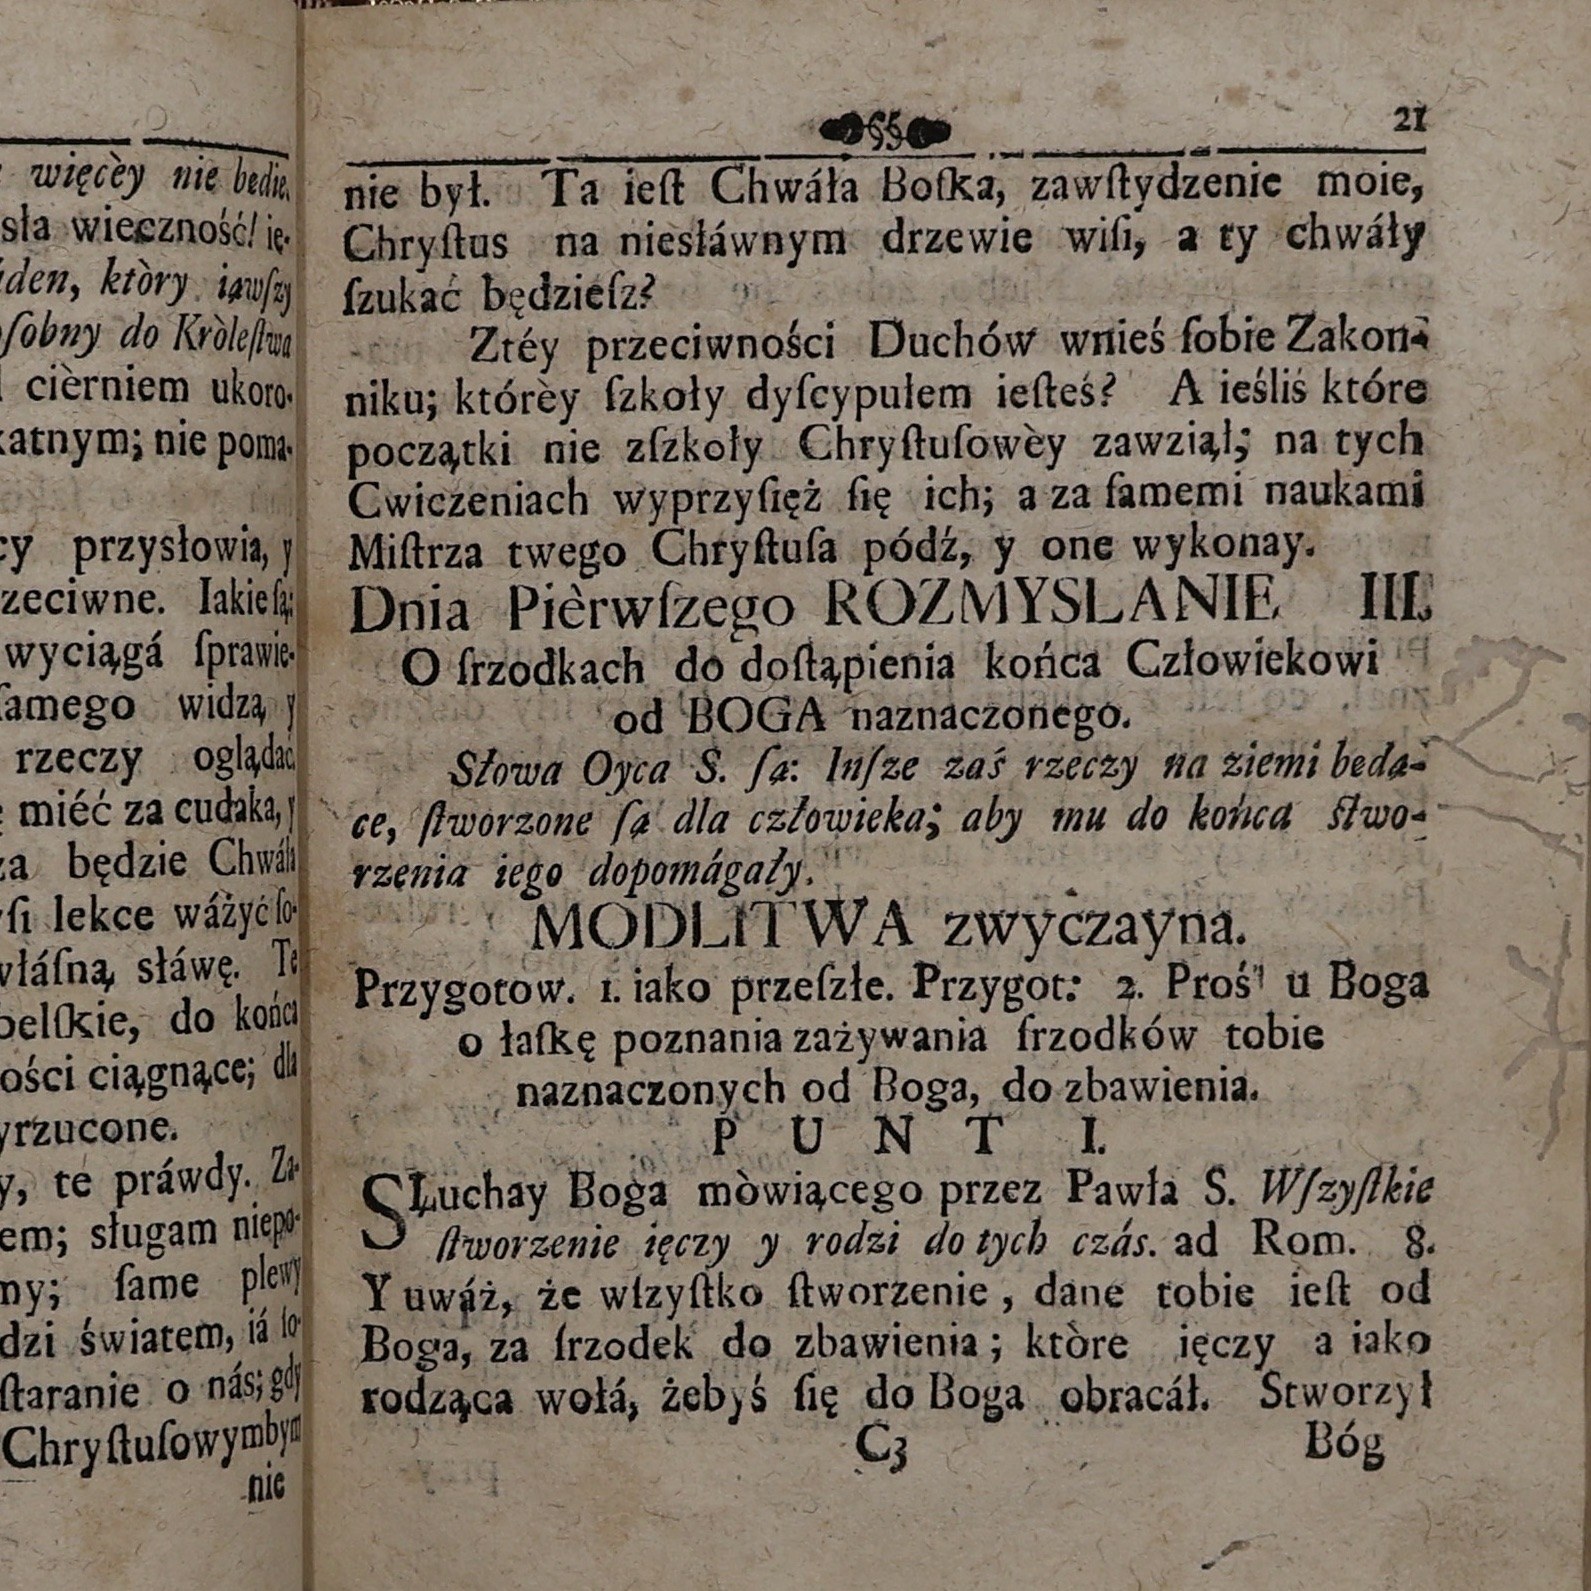 więcèy nie bedie.
sła wieczność! ię-
den, ktòry iąwſzy
oſobny do Kròleſtwa
cièrniem ukoro-
katnym; nie poma-
cy przysłowia, y
zeciwne. Iakie ſą;
wyciągá ſprawie-
ſamego widzą, y
rzeczy oglądać.
miéć za cudaka, y
za będzie Chwáła
yſi lekce wáżyć ſo-
właſną, słáwę. Te
belſkie, do końca
ości ciągnące; dla
yrzucone.
y, te práwdy. Za-
em; sługam niepo-
my; ſame plewy
dzi światem, iá ſo-
ſtaranie o nás; gdy
Chryſtuſowym bym
nie
21
nie był. Ta ieſt Chwáła Boſka, zawſtydzenie moie,
Chryſtus na niesłáwnym drzewie wiſi, a ty chwáły
ſzukać będzieſz?
Ztéy przeciwności Duchów wnieś ſobie Zakon-
niku; którèy ſzkoły dyſcypułem ieſteś? A ieśliś które
początki nie zſzkoły Chryſtuſowèy zawziął; na tych
Cwiczeniach wyprzyſięż ſię ich; a za ſamemi naukami
Miſtrza twego Chryſtuſa pódź, y one wykonay.
Dnia Pièrwſzego ROZMYSLANIE III.
O ſrzodkach do doſtąpienia końca Człowiekowi
od BOGA naznaczonego.
Słowa Oyca S. ſą: Inſze zaś rzeczy na ziemi będą-
ce, ſtworzone ſą dla człowieka; aby mu do końca ſtwo-
rzenia iego dopomágały.
MODLITWA zwyczayna.
Przygotow. 1. iako przeſzłe. Przygot: 2. Proś u Boga
o łaſkę poznania zażywania ſrzodków tobie
naznaczonych od Boga, do zbawienia.
PUNT I.
SŁuchay Boga mòwiącego przez Pawła S. Wſzyſtkie
ſtworzenie ięczy y rodzi do tych czás. ad Rom. 8.
Y uwáż, że wſzyſtko ſtworzenie, dane tobie ieſt od
Boga, za ſrzodek do zbawienia; ktòre ięczy a iako
rodząca wołá, żebyś ſię do Boga obracáł. Stworzył
C3 Bóg